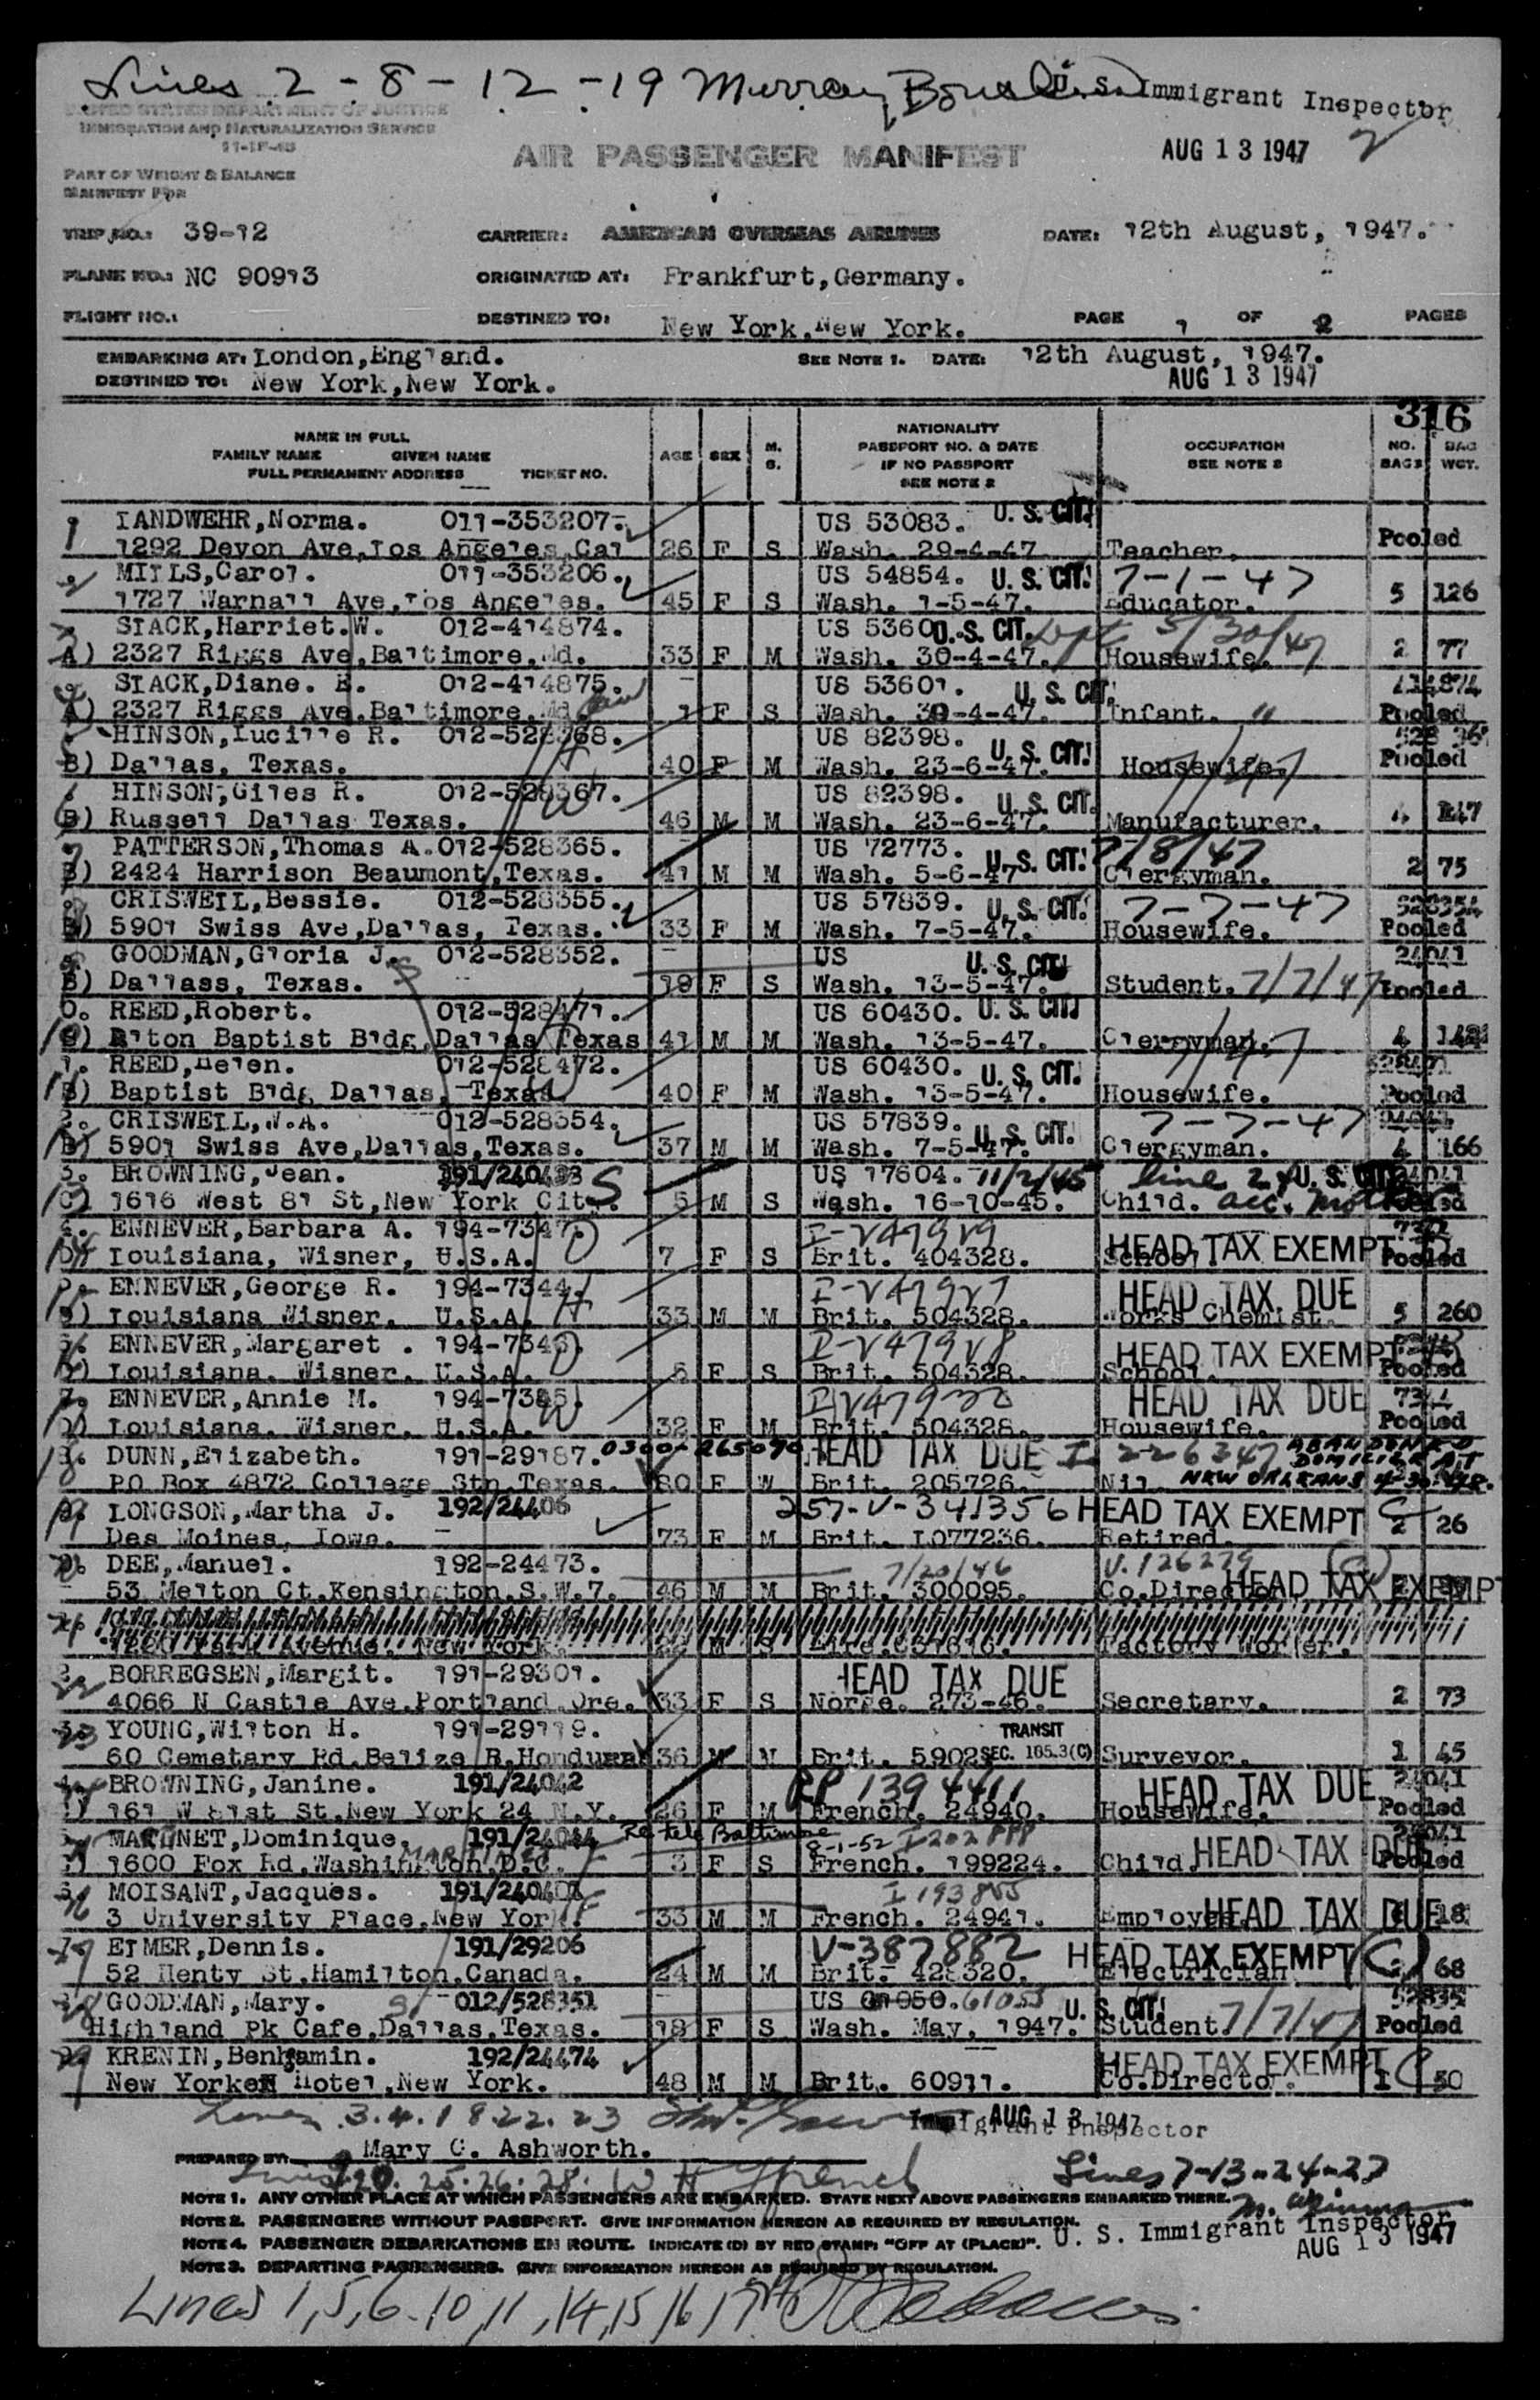 Lines 2 - 8 - 12 - 19 Murray U. S. Immigrant Inspector
UNITED STATES DEPARTMENT OF JUSTICE
IMMIGRATION AND NATURALIZATION SERVICE
AIR PASSENGER MANIFEST AUG 13 1947
PART OF WEIGHT & BALANCE
MANIFEST FOR
TRIP NO.: 39-12 CARRIER: AMERICAN OVERSEAS AIRLINES DATE: 12th August, 1947.
PLANE NO.: NC 90913 ORIGINATED AT: Frankfurt,Germany.
FLIGHT NO.: DESTINED TO: New York,New York. PAGE 1 OF 2 PAGES
EMBARKING AT: London,England. SEE NOTE 1. DATE: 12th August, 1947.
DESTINED TO: New York,New York. AUG 13 1947
316
NAME IN FULL
FAMILY NAME GIVEN NAME
FULL PERMANENT ADDRESS TICKET NO.
AGE SEX M. S.
NATIONALITY
PASSPORT NO. & DATE
IF NO PASSPORT
SEE NOTE 2
OCCUPATION
SEE NOTE 2
NO. BAGS BAG WGT.
1 LANDWEHR,Norma. 011-353207. US 53083. U. S. CIT.
1292 Devon Ave,Los Angeles,Cal 26 F S Wash. 29-4-47. Teacher. Pooled
MILLS,Carol. 011-353206. US 54854. U. S. CIT. 7-1-47
1727 Warnall Ave,Los Angeles. 45 F S Wash. 1-5-47. Educator. 5 126
SLACK,Harriet.W. 012-414874. US 5360 U. S. CIT. 5/30/47
A) 2327 Riggs Ave,Baltimore,Md. 33 F M Wash. 30-4-47. Housewife. 2 77
SLACK,Diane. E. 012-414875. US 53601. U. S. CIT. 414874
A) 2327 Riggs Ave.Baltimore,Md. 1 F S Wash. 30-4-47. Infant. " Pooled
HINSON,Lucille R. 012-528368. US 82398. U. S. CIT.
B) Dallas, Texas. 40 F M Wash. 23-6-47. Housewife. Pooled
HINSON,Giles R. 012-528367. US 82398. U. S. CIT.
B) Russell Dallas Texas. 46 M M Wash. 23-6-47. Manufacturer. 4 147
7 PATTERSON,Thomas A. 012-528365. US 72773. U. S. CIT. 7/8/47
B) 2424 Harrison Beaumont,Texas. 41 M M Wash. 5-6-47 Clergyman. 2 75
CRISWELL,Bessie. 012-528355. US 57839. U. S. CIT. 7-7-47 528354
B) 5901 Swiss Ave,Dallas, Texas. 33 F M Wash. 7-5-47. Housewife. Pooled
GOODMAN,Gloria J. 012-528352. US U. S. CIT. 24041
B) Dallass, Texas. 19 F S Wash. 13-5-47. Student. 7/7/47 Pooled
0. REED,Robert. 012-528471. US 60430. U. S. CIT.
Baptist Bldg,Dallas Texas 41 M M Wash. 13-5-47. Clergyman. 4
1. REED,Helen. 012-528472. US 60430. U. S. CIT. 528471
B) Baptist Bldg Dallas, Texas 40 F M Wash. 13-5-47. Housewife. Pooled
2. CRISWELL,W.A. 012-528354. US 57839. U. S. CIT. 7-7-47
B) 5901 Swiss Ave,Dallas,Texas. 37 M M Wash. 7-5-47. Clergyman. 4 166
3. BROWNING,Jean. 191/240433 S US 17604. 11/2/45 line 24 U. S. CIT. 24041
C) 1616 West 81 St,New York City. 5 M S Wash. 16-10-45. Child. acc. mother
ENNEVER,Barbara A. 194-7347. I-V47929
Louisiana, Wisner, U.S.A. 7 F S Brit. 404328. School. HEAD TAX EXEMPT Pooled
ENNEVER,George R. 194-7344. I-V47927 HEAD TAX DUE
D) Louisiana Wisner. U.S.A. 33 M M Brit. 504328. Works Chemist. 5 260
ENNEVER,Margaret . 194-7346. I-V47928 HEAD TAX EXEMPT
D) Louisiana. Wisner. U.S.A. F S Brit. 504328. School. Pooled
ENNEVER,Annie M. 194-7345. HEAD TAX DUE 7344
D) Louisiana. Wisner. U.S.A. 32 F M Brit. 504328. Housewife. Pooled
DUNN,Elizabeth. 191-29187. 0300-265090 HEAD TAX DUE I 226347 ABANDONED DOMICILE AT
18 PO Box 4872 College Stn,Texas. 80 F W Brit. 205726. Nil. NEW ORLEANS 4-30-48.
LONGSON,Martha J. 192/24406 257-V-341356 HEAD TAX EXEMPT
Des Moines, Iowa. 73 F M Brit. L077236. Retired. 2 26
DEE,Manuel. 192-24473. 7/20/46 V.126279
53 Melton Ct.Kensington.S.W.7. 46 M M Brit. 300095. Co.Director HEAD TAX EXEMPT
Park Avenue. New York. M S Factory Worker.
22 BORREGSEN,Margit. 191-29301. HEAD TAX DUE
4066 N Castle Ave.Portland.Ore. 33 F S Norge. 273-46. Secretary. 2 73
23 YOUNG,Wilton H. 191-29119. TRANSIT
60 Cemetary Rd.Belize B.Honduras 36 M M Brit. 5902 SEC. 165.3(C) Surveyor. 1 45
BROWNING,Janine. 191/24042 RP 1394411 HEAD TAX DUE 24041
161 W 81st St.New York 24 N.Y. 26 F M French. 24940. Housewife. Pooled
MARUNET,Dominique. 191/24044 Re tele Baltimore 8-1-52 24041
1600 Fox Rd.Washington.D.C. 3 F S French. 199224. Child. HEAD TAX DUE Pooled
MOISANT,Jacques. 191/240401 I 193855
3 University Place,New York. 33 M M French. 24941. Employee. HEAD TAX DUE 18
27 ELMER,Dennis. 191/29206 V-387882 HEAD TAX EXEMPT
52 Henty St.Hamilton.Canada. 24 M M Brit. 428320. Electrician 2 68
28 GOODMAN,Mary. 012/528351 US 61055 U. S. CIT. 52835
Highland Pk Cafe.Dallas.Texas. 18 F S Wash. May, 1947. Student. 7/7/47 Pooled
29 KRENIN,Benjamin. 192/24474 HEAD TAX EXEMPT
New Yorker Hotel,New York. 48 M M Brit. 60911. Co.Director. 1 50
Lines 3.4.18.22.23 AUG 13 1947 Immigrant Inspector
PREPARED BY: Mary C. Ashworth.
Lines 20. 25. 26. 28. W H French Lines 7-13-24-27
NOTE 1. ANY OTHER PLACE AT WHICH PASSENGERS ARE EMBARKED. STATE NEXT ABOVE PASSENGERS EMBARKED THERE.
NOTE 2. PASSENGERS WITHOUT PASSPORT. GIVE INFORMATION HEREON AS REQUIRED BY REGULATION.
U. S. Immigrant Inspector
NOTE 4. PASSENGER DEBARKATIONS EN ROUTE. INDICATE (D) BY RED STAMP: "OFF AT (PLACE)".
AUG 13 1947
NOTE 3. DEPARTING PASSENGERS. GIVE INFORMATION HEREON AS REQUIRED BY REGULATION.
Lines 1, 5, 6. 10, 11, 14, 15 16 17